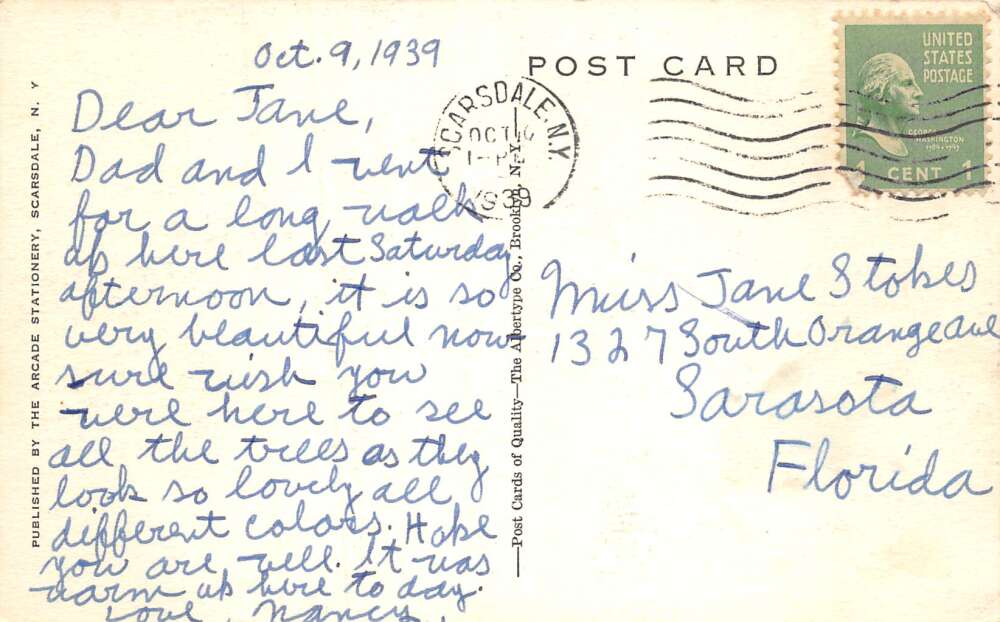 Oct. 9, 1939
Dear Jane,
Dad and I went
for a long walk
up here last Saturday
afternoon, it is so
very beautiful now
sure wish you
were here to see
all the trees as they
look so lovely all
different colors. Hope
you are well. It was
warm up here to day.
Love, Nancy.
PUBLISHED BY THE ARCADE STATIONERY, SCARSDALE, N. Y
POST CARD
SCARSDALE, N.Y.
OCT
1939
UNITED
STATES
POSTAGE
GEORGE
WASHINGTON
1 CENT 1
—Post Cards of Quality—The Albertype Co., Brooklyn, N. Y.—
Miss Jane Stokes
1327 South Orange Ave
Sarasota
Florida